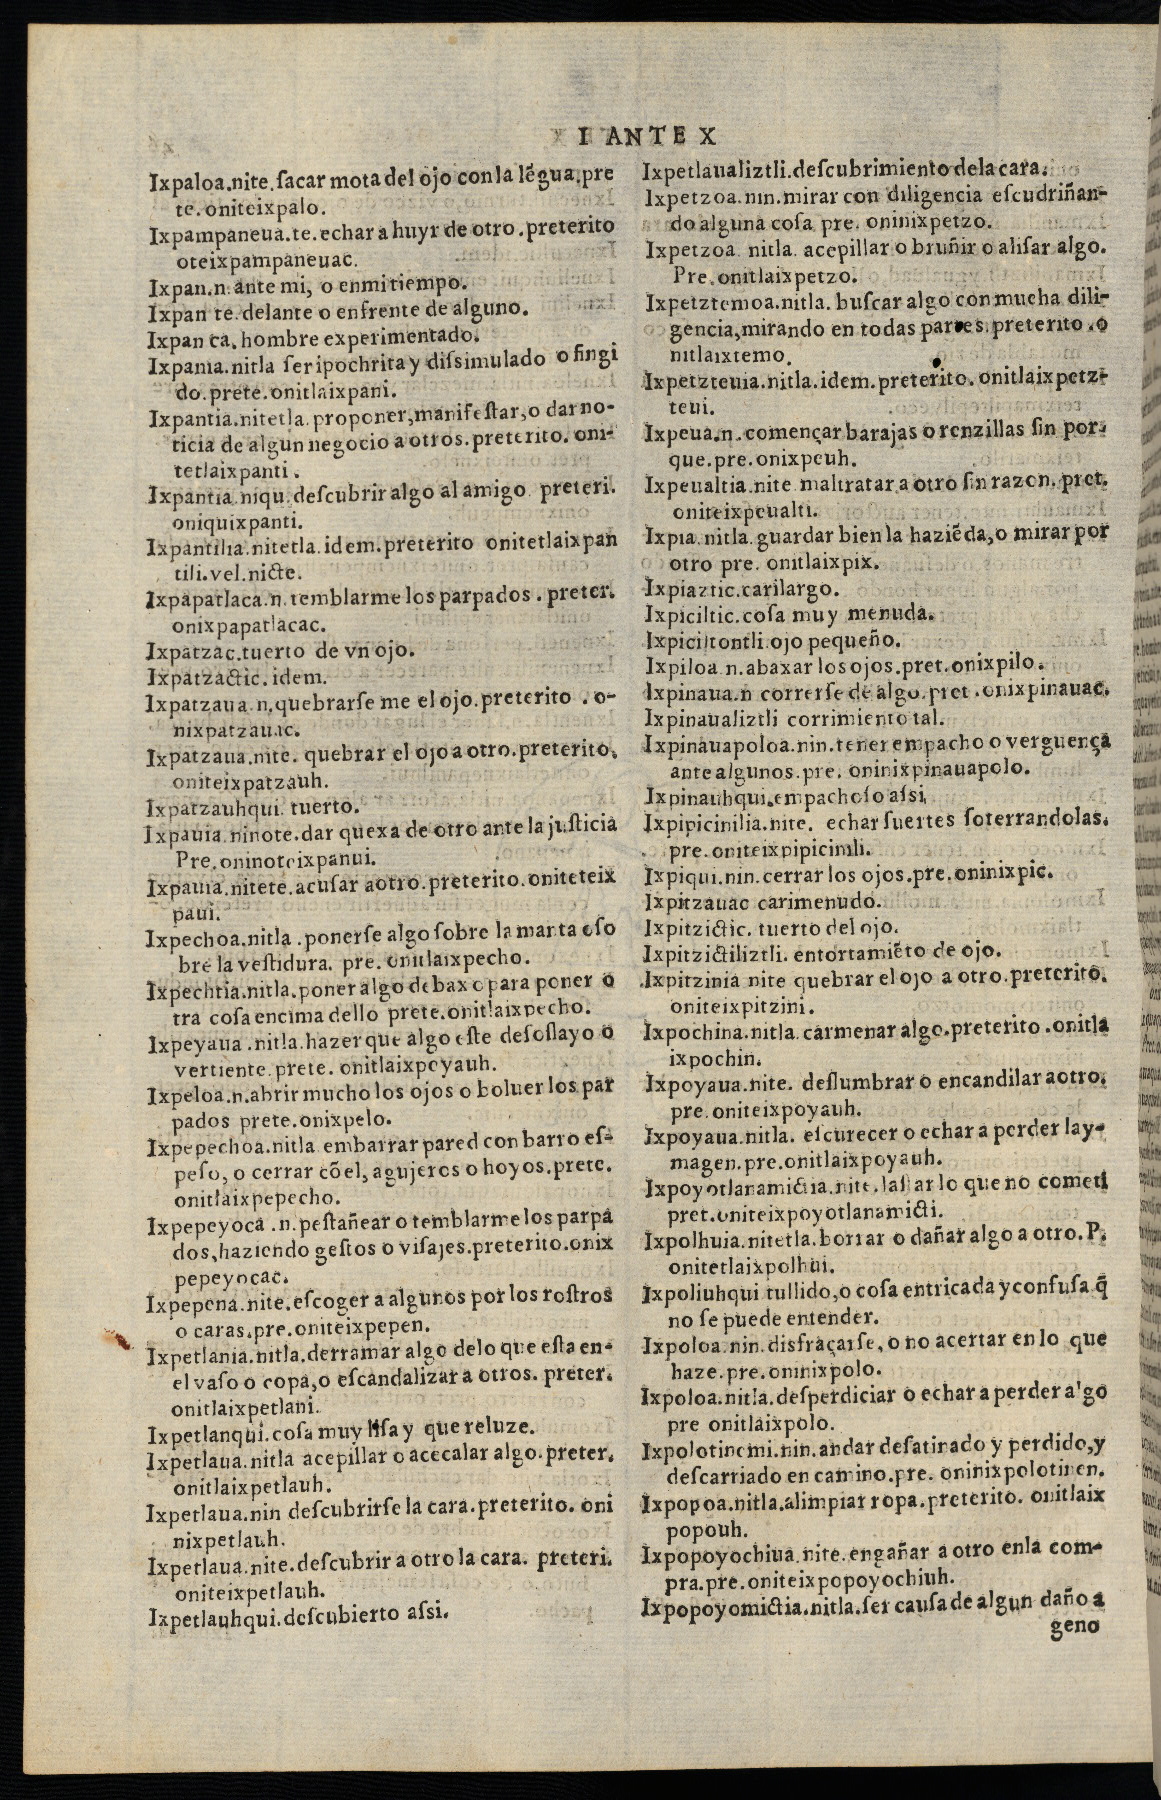 I ANTE X
Ixpaloa.nite.ſacar mota del ojo con la lẽgua.pre
te.oniteixpalo.
Ixpampaneua.te.echar a huyr de otro.preterito
oteixpampaneuac.
Ixpan.n.ante mi, o enmi tiempo.
Ixpan te.delante o enfrente de alguno.
Ixpan ca.hombre experimentado.
Ixpania.nitla ſer ipochrita y diſsimulado o fingi
do.prete.onitlaixpani.
Ixpantia.nitetla.proponer,manifeſtar,o dar no-
ticia de algun negocio a otros.preterito. oni-
tetlaixpanti.
Ixpantia.niqu.deſcubrir algo al amigo preteri.
oniquixpanti.
Ixpantilia.nitetla.idem.preterito onitetlaixpan
tili.vel.nicte.
Ixpapatlaca.n.temblarme los parpados.preter.
onixpapatlacac.
Ixpatzac.tuerto de vn ojo.
Ixpatzactic.idem.
Ixpatzaua.n.quebrarſe me el ojo.preterito.o-
nixpatzauac.
Ixpatzaua.nite.quebrar el ojo a otro.preterito.
oniteixpatzauh.
Ixpatzauhqui.tuerto.
Ixpauia.ninote.dar quexa de otro ante la juſticia
Pre.oninoteixpanui.
Ixpauia.nitete.acuſar aotro.preterito.oniteteix
paui.
Ixpechoa.nitla.ponerſe algo ſobre la manta oſo
bre la veſtidura. pre.onitlaixpecho.
Ixpechtia.nitla.poner algo debaxo para poner o
tra coſa encima dello prete.onitlaixpecho.
Ixpeyaua.nitla.hazer que algo eſte deſoſlayo o
vertiente.prete. onitlaixpeyauh.
Ixpeloa.n.abrir mucho los ojos o boluer los par
pados prete.onixpelo.
Ixpepechoa.nitla.embarrar pared con barro eſ-
peſo, o cerrar cõel, agujeros o hoyos.prete.
onitlaixpepecho.
Ixpepeyoca.n.peſtañear o temblarme los parpa
dos,haziendo geſtos o viſajes.preterito.onix
pepeyocac.
Ixpepena.nite.eſcoger a algunos por los roſtros
o caras.pre.oniteixpepen.
Ixpetlania.nitla.derramar algo delo que eſta en-
el vaſo o copa,o eſcandalizar a otros. preter.
onitlaixpetlani.
Ixpetlanqui.coſa muy liſa y que reluze.
Ixpetlaua.nitla acepillar o acecalar algo.preter.
onitlaixpetlauh.
Ixpetlaua.nin deſcubrirſe la cara.preterito. oni
nixpetlauh.
Ixpetlaua.nite.deſcubrir a otro la cara. preteri.
oniteixpetlauh.
Ixpetlauhqui.deſcubierto aſsi.
Ixpetlaualiztli.deſcubrimiento dela cara.
Ixpetzoa.nin.mirar con diligencia eſcudriñan-
do alguna coſa pre. oninixpetzo.
Ixpetzoa nitla. acepillar o bruñir o aliſar algo.
Pre.onitlaixpetzo.
Ixpetztemoa.nitla.buſcar algo con mucha dili-
gencia,mirando en todas partes.preterito.o
nitlaixtemo.
Ixpetzteuia.nitla.idem.preterito. onitlaixpetz-
teui.
Ixpeua.n.començar barajas o renzillas ſin por-
que.pre.onixpeuh.
Ixpeualtia.nite maltratar a otro ſin razon. pret.
oniteixpeualti.
Ixpia.nitla.guardar bien la haziẽda,o mirar por
otro pre. onitlaixpix.
Ixpiaztic.carilargo.
Ixpiciltic.coſa muy menuda.
Ixpiciltontli ojo pequeño.
Ixpiloa n.abaxar los ojos.pret.onixpilo.
Ixpinaua.n correrſe de algo.pret.onixpinauac.
Ixpinaualiztli corrimiento tal.
Ixpinauapoloa.nin.tener empacho o verguença
ante algunos.pre. oninixpinauapolo.
Ixpinauhqui.empachoſo aſsi
Ixpipicinilia.nite. echar ſuertes ſoterrandolas.
pre.oniteixpipicinili.
Ixpiqui.nin.cerrar los ojos.pre.oninixpic.
Ixpitzauac carimenudo.
Ixpitzictic. tuerto del ojo.
Ixpitzictiliztli. entortamiẽto de ojo.
Ixpitzinia nite quebrar el ojo a otro.preterito.
oniteixpitzini.
Ixpochina.nitla.carmenar algo.preterito.onitla
ixpochin.
Ixpoyaua.nite. deſlumbrar o encandilar aotro.
pre.oniteixpoyauh.
Ixpoyaua.nitla. eſcurecer o echar a perder lay-
magen.pre.onitlaixpoyauh.
Ixpoyotlanamictia.nite.laſtar lo que no cometi
pret.oniteixpoyotlanamicti.
Ixpolhuia.nitetla.borrar o dañar algo a otro.P.
onitetlaixpolhui.
Ixpoliuhqui tullido,o coſa entricada y confuſa q̃
no ſe puede entender.
Ixpoloa.nin.disfraçarſe,o no acertar en lo que
haze.pre.oninixpolo.
Ixpoloa.nitla.deſperdiciar o echar a perder algo
pre onitlaixpolo.
Ixpolotinemi.nin.andar deſatinado y perdido,y
deſcarriado en camino.pre. oninixpolotinen.
Ixpopoa.nitla.alimpiar ropa.preterito. onitlaix
popouh.
Ixpopoyochiua.nite.engañar a otro enla com-
pra.pre.oniteixpopoyochiuh.
Ixpopoyomictia.nitla.ſer cauſa de algun daño a
geno